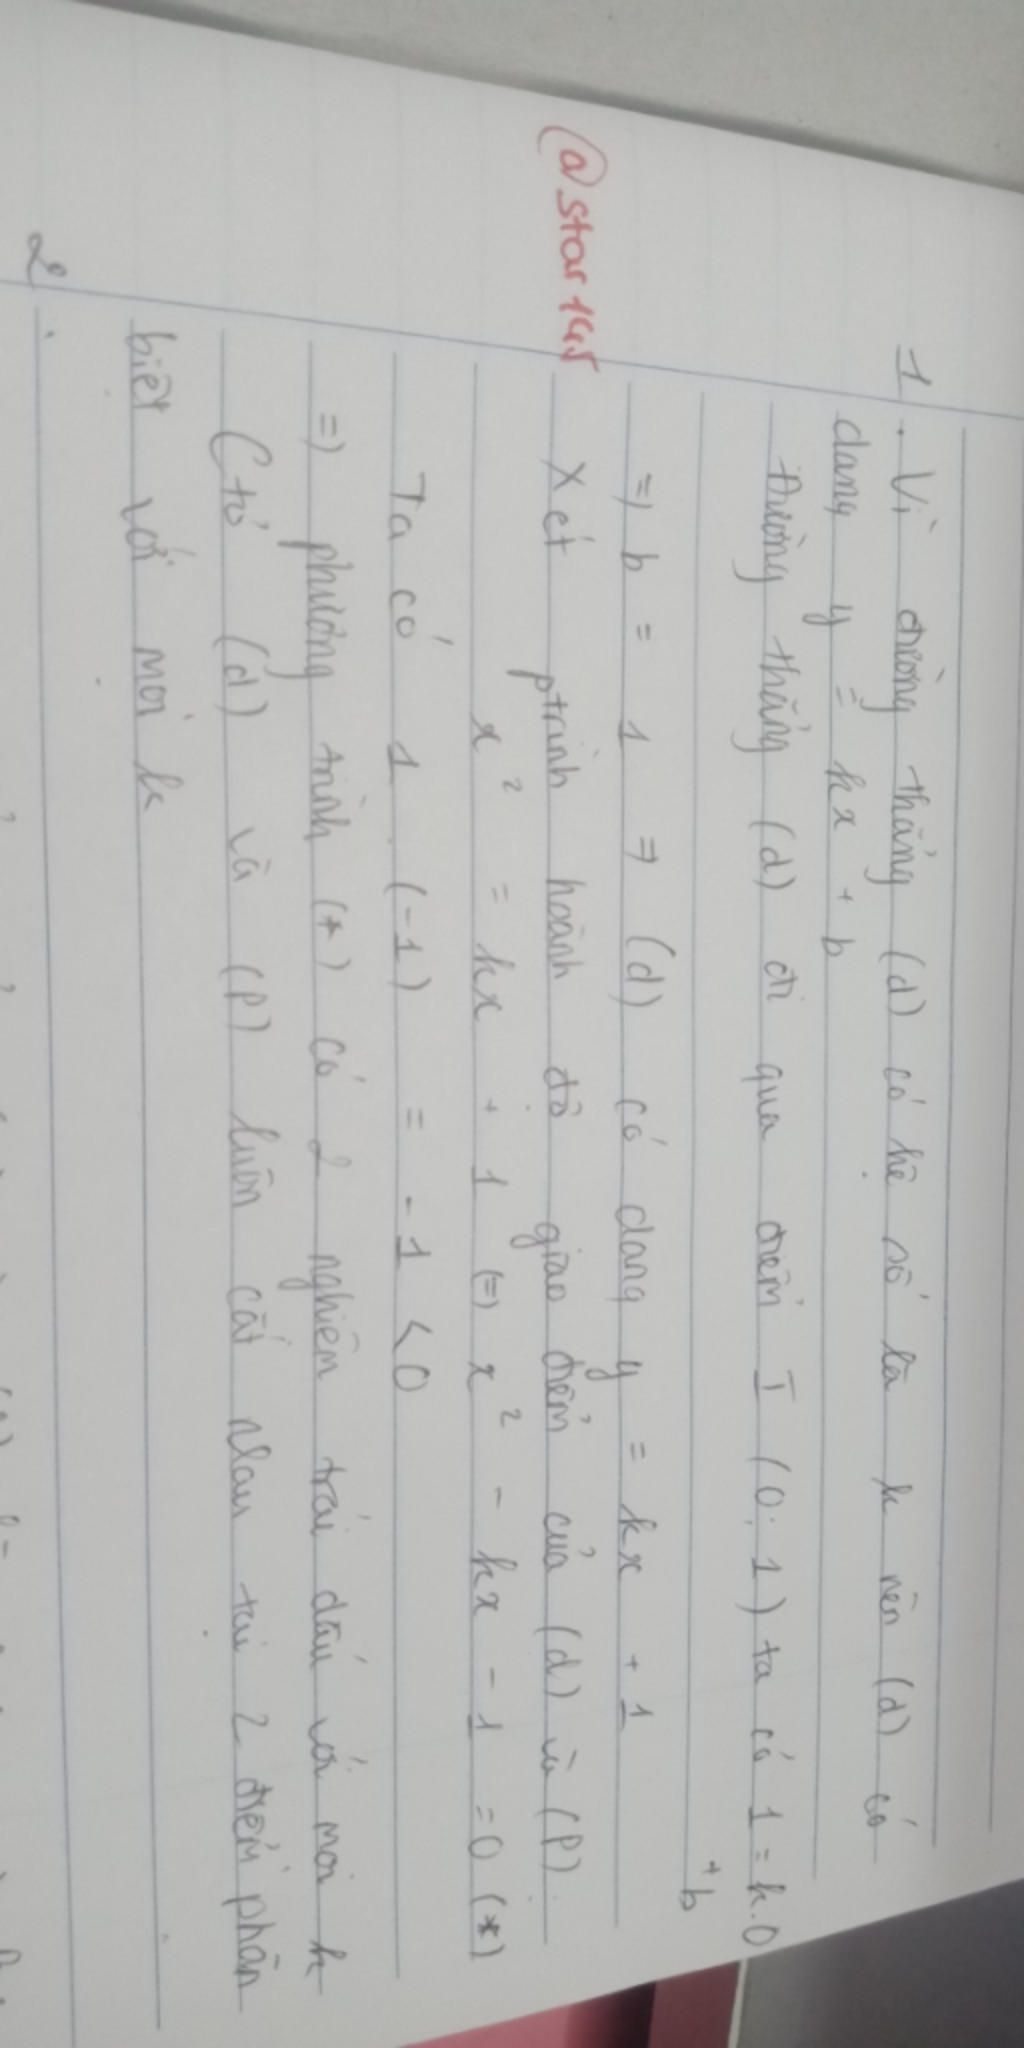 1. Vì đường thẳng (d) có hệ số là k nên (d) có
dạng y = kx + b
Đường thẳng (d) đi qua điểm I (0; 1) ta có 1 = k.0
+ b
=> b = 1 => (d) có dạng y = kx + 1
@star145
Xét ptrình hoành độ giao điểm của (d) và (P).
x² = kx + 1 (=) x² - kx - 1 = 0 (*)
Ta có 1.(-1) = -1 < 0
=) phương trình (*) có 2 nghiệm trái dấu với mọi k
(tỏ (d) và (P) luôn cắt nhau tại 2 điểm phân
biệt với mọi k
2.